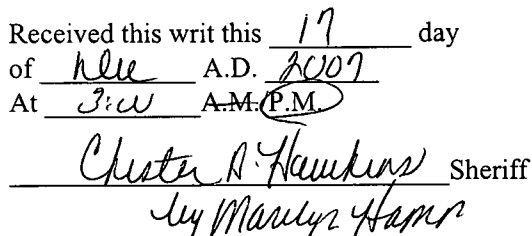 Received this writ this 17 day
of Dec A.D. 2007
At 3:00 A.M./P.M.
Chester A. Hawkins Sheriff
by Marilyn Hamm